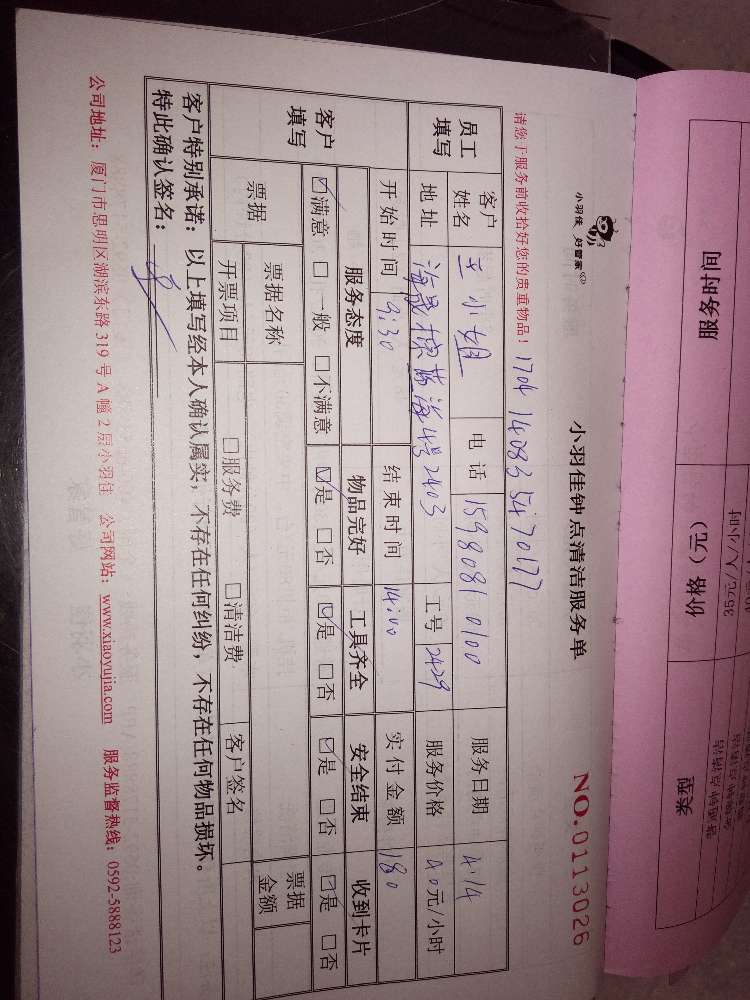 小羽佳 好管家
小羽佳钟点清洁服务单
NO.0113026
请您于服务前收拾好您的贵重物品！ 1704 14083 5470177
员工填写 客户姓名 王小姐 电话 15980810100 服务日期 4.14
地址 海晟棕蓝海4号2403 工号 2429 服务价格 40元/小时
开始时间 9:30 结束时间 14:00 实付金额 180
客户填写 服务态度 物品完好 工具齐全 安全结束 收到卡片
☑满意 □一般 □不满意 ☑是 □否 ☑是 □否 ☑是 □否 ☑是 □否
票据 票据名称 票据金额
开票项目 □服务费 □清洁费 客户签名
客户特别承诺：以上填写经本人确认属实，不存在任何纠纷，不存在任何物品损坏。
特此确认签名：
公司地址：厦门市思明区湖滨东路 319 号 A 幢 2 层小羽佳 公司网站：www.xiaoyujia.com 服务监督热线：0592-5888123
服务时间
价格（元） 35元/人/小时
类型